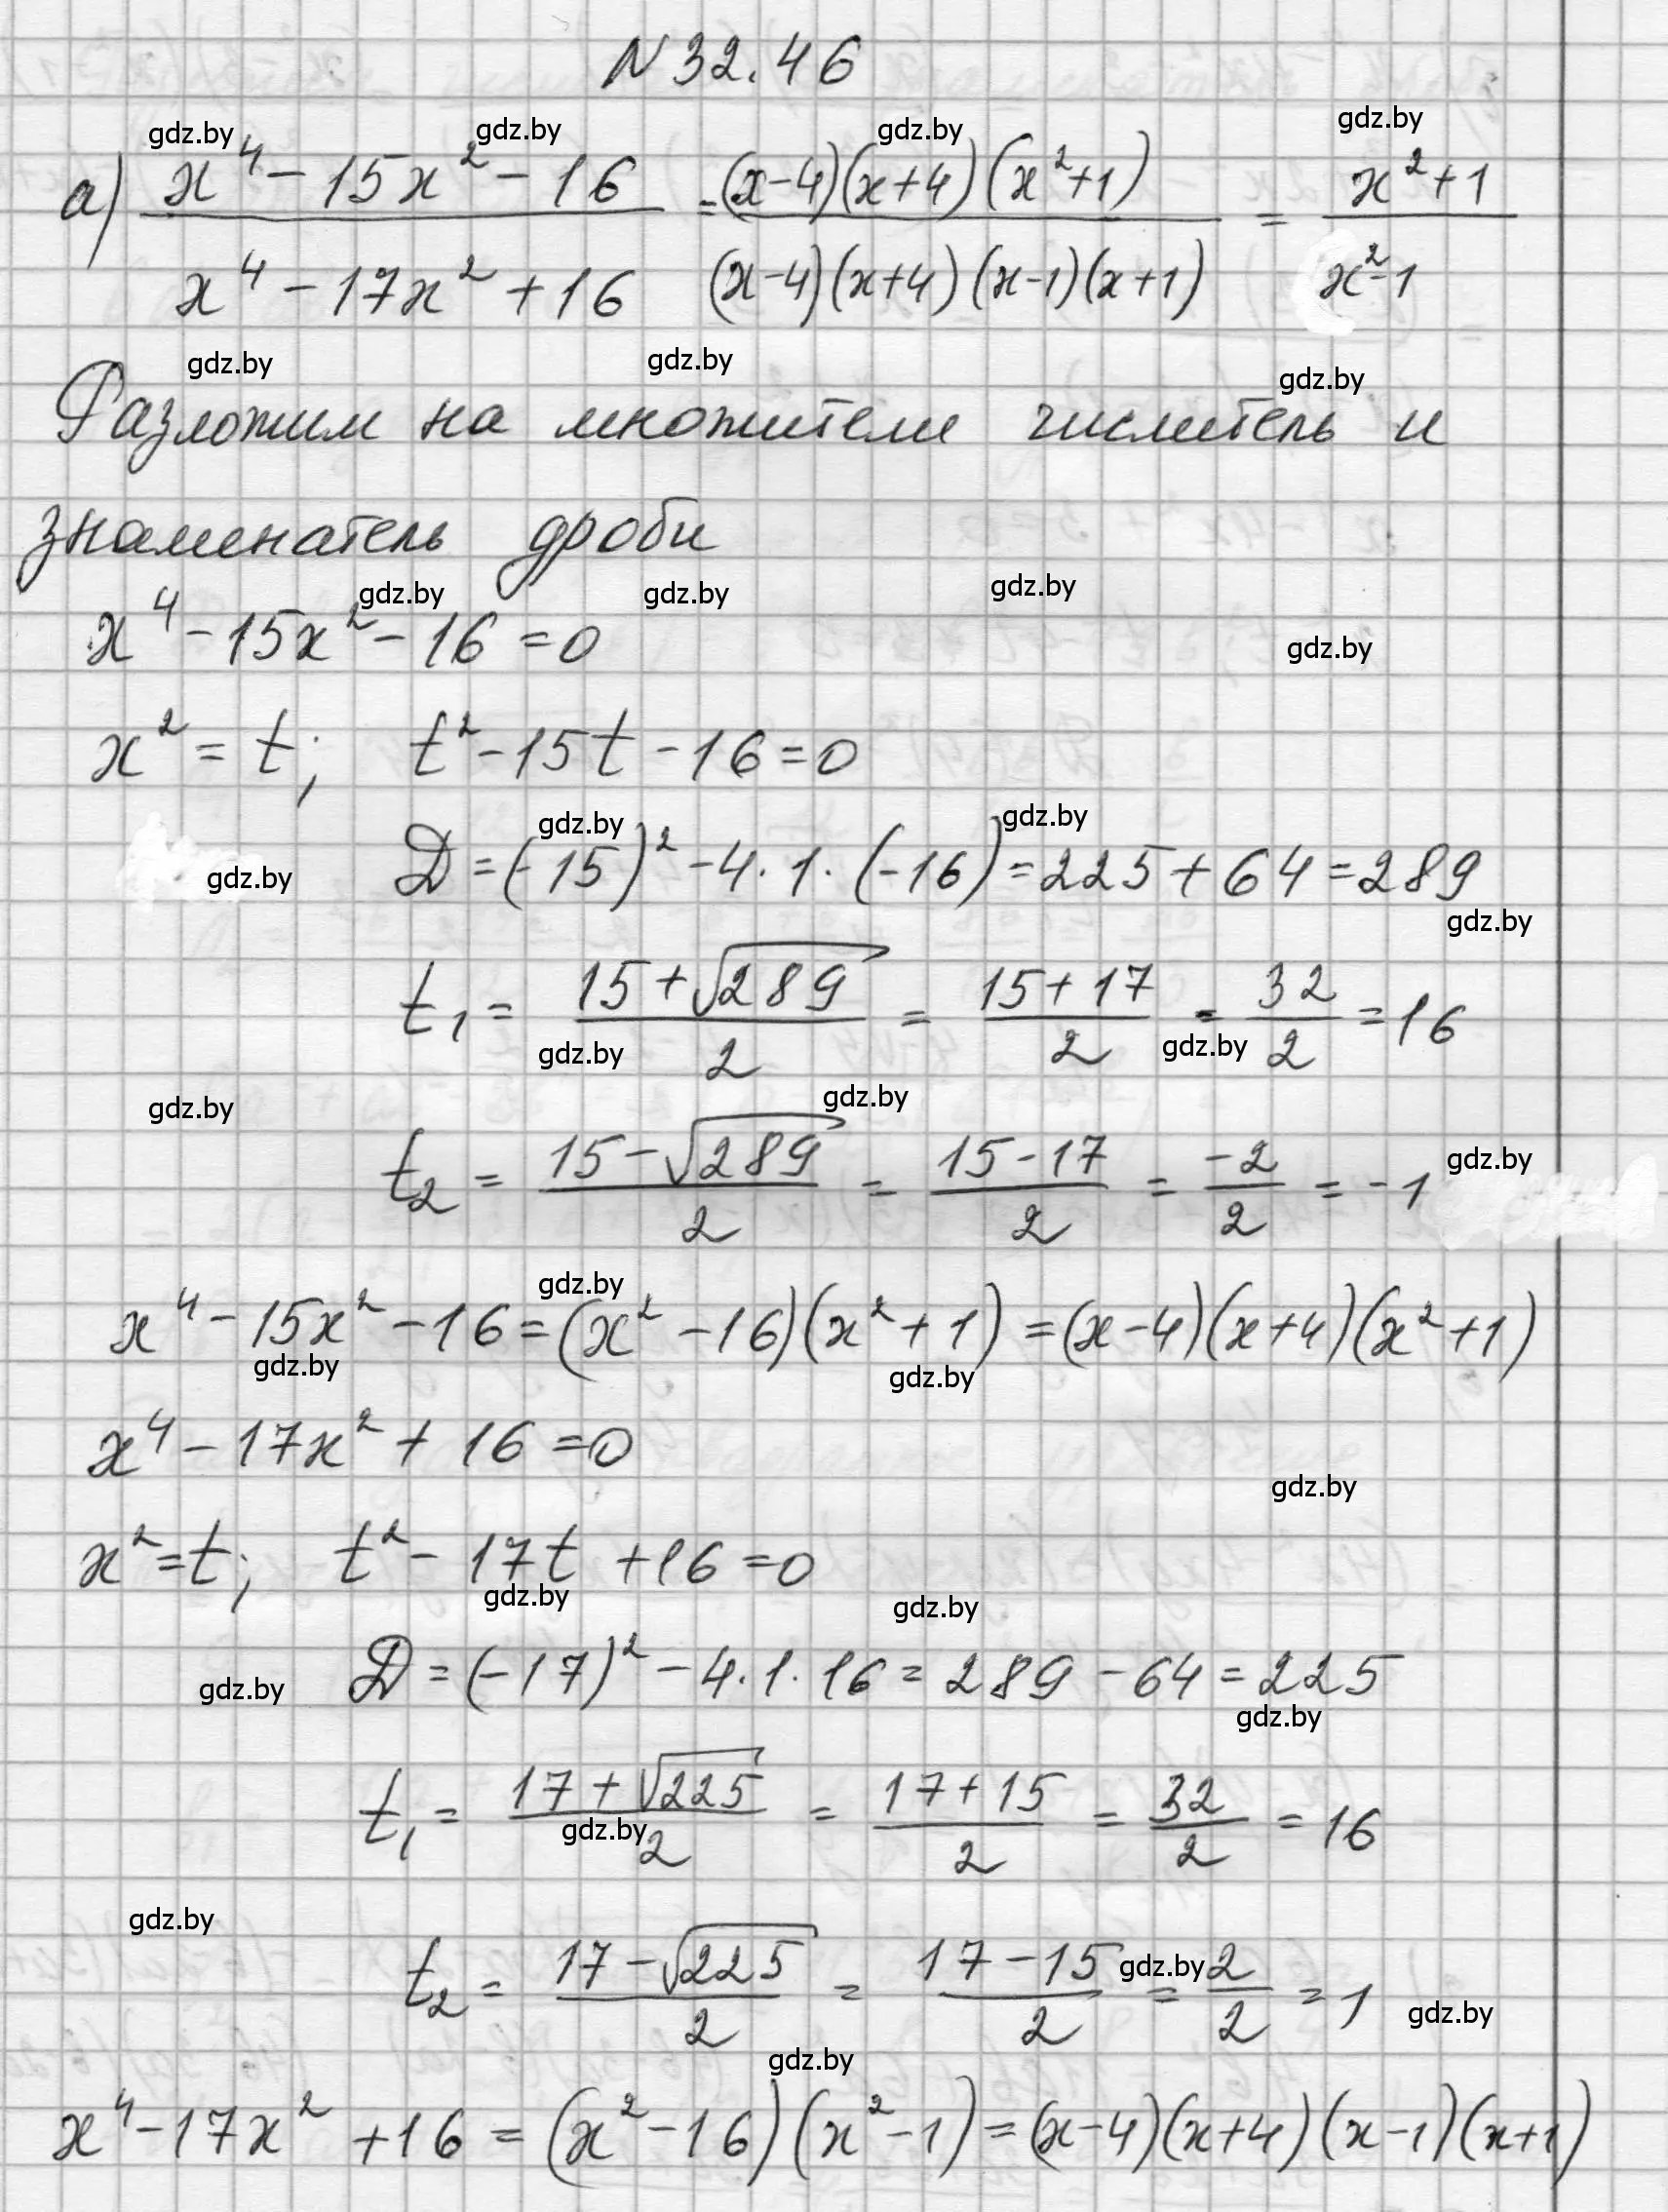 N 32.46
а) (x⁴ - 15x² - 16)/(x⁴ - 17x² + 16) = ((x-4)(x+4)(x²+1))/((x-4)(x+4)(x-1)(x+1)) = (x²+1)/(x²-1)
Разложим на множители числитель и
знаменатель дроби
x⁴ - 15x² - 16 = 0
x² = t; t² - 15t - 16 = 0
D = (-15)² - 4·1·(-16) = 225 + 64 = 289
t₁ = (15+√289)/2 = (15+17)/2 = 32/2 = 16
t₂ = (15-√289)/2 = (15-17)/2 = -2/2 = -1
x⁴ - 15x² - 16 = (x² - 16)(x² + 1) = (x-4)(x+4)(x²+1)
x⁴ - 17x² + 16 = 0
x² = t; t² - 17t + 16 = 0
D = (-17)² - 4·1·16 = 289 - 64 = 225
t₁ = (17+√225)/2 = (17+15)/2 = 32/2 = 16
t₂ = (17-√225)/2 = (17-15)/2 = 2/2 = 1
x⁴ - 17x² + 16 = (x² - 16)(x² - 1) = (x-4)(x+4)(x-1)(x+1)
gdz.by